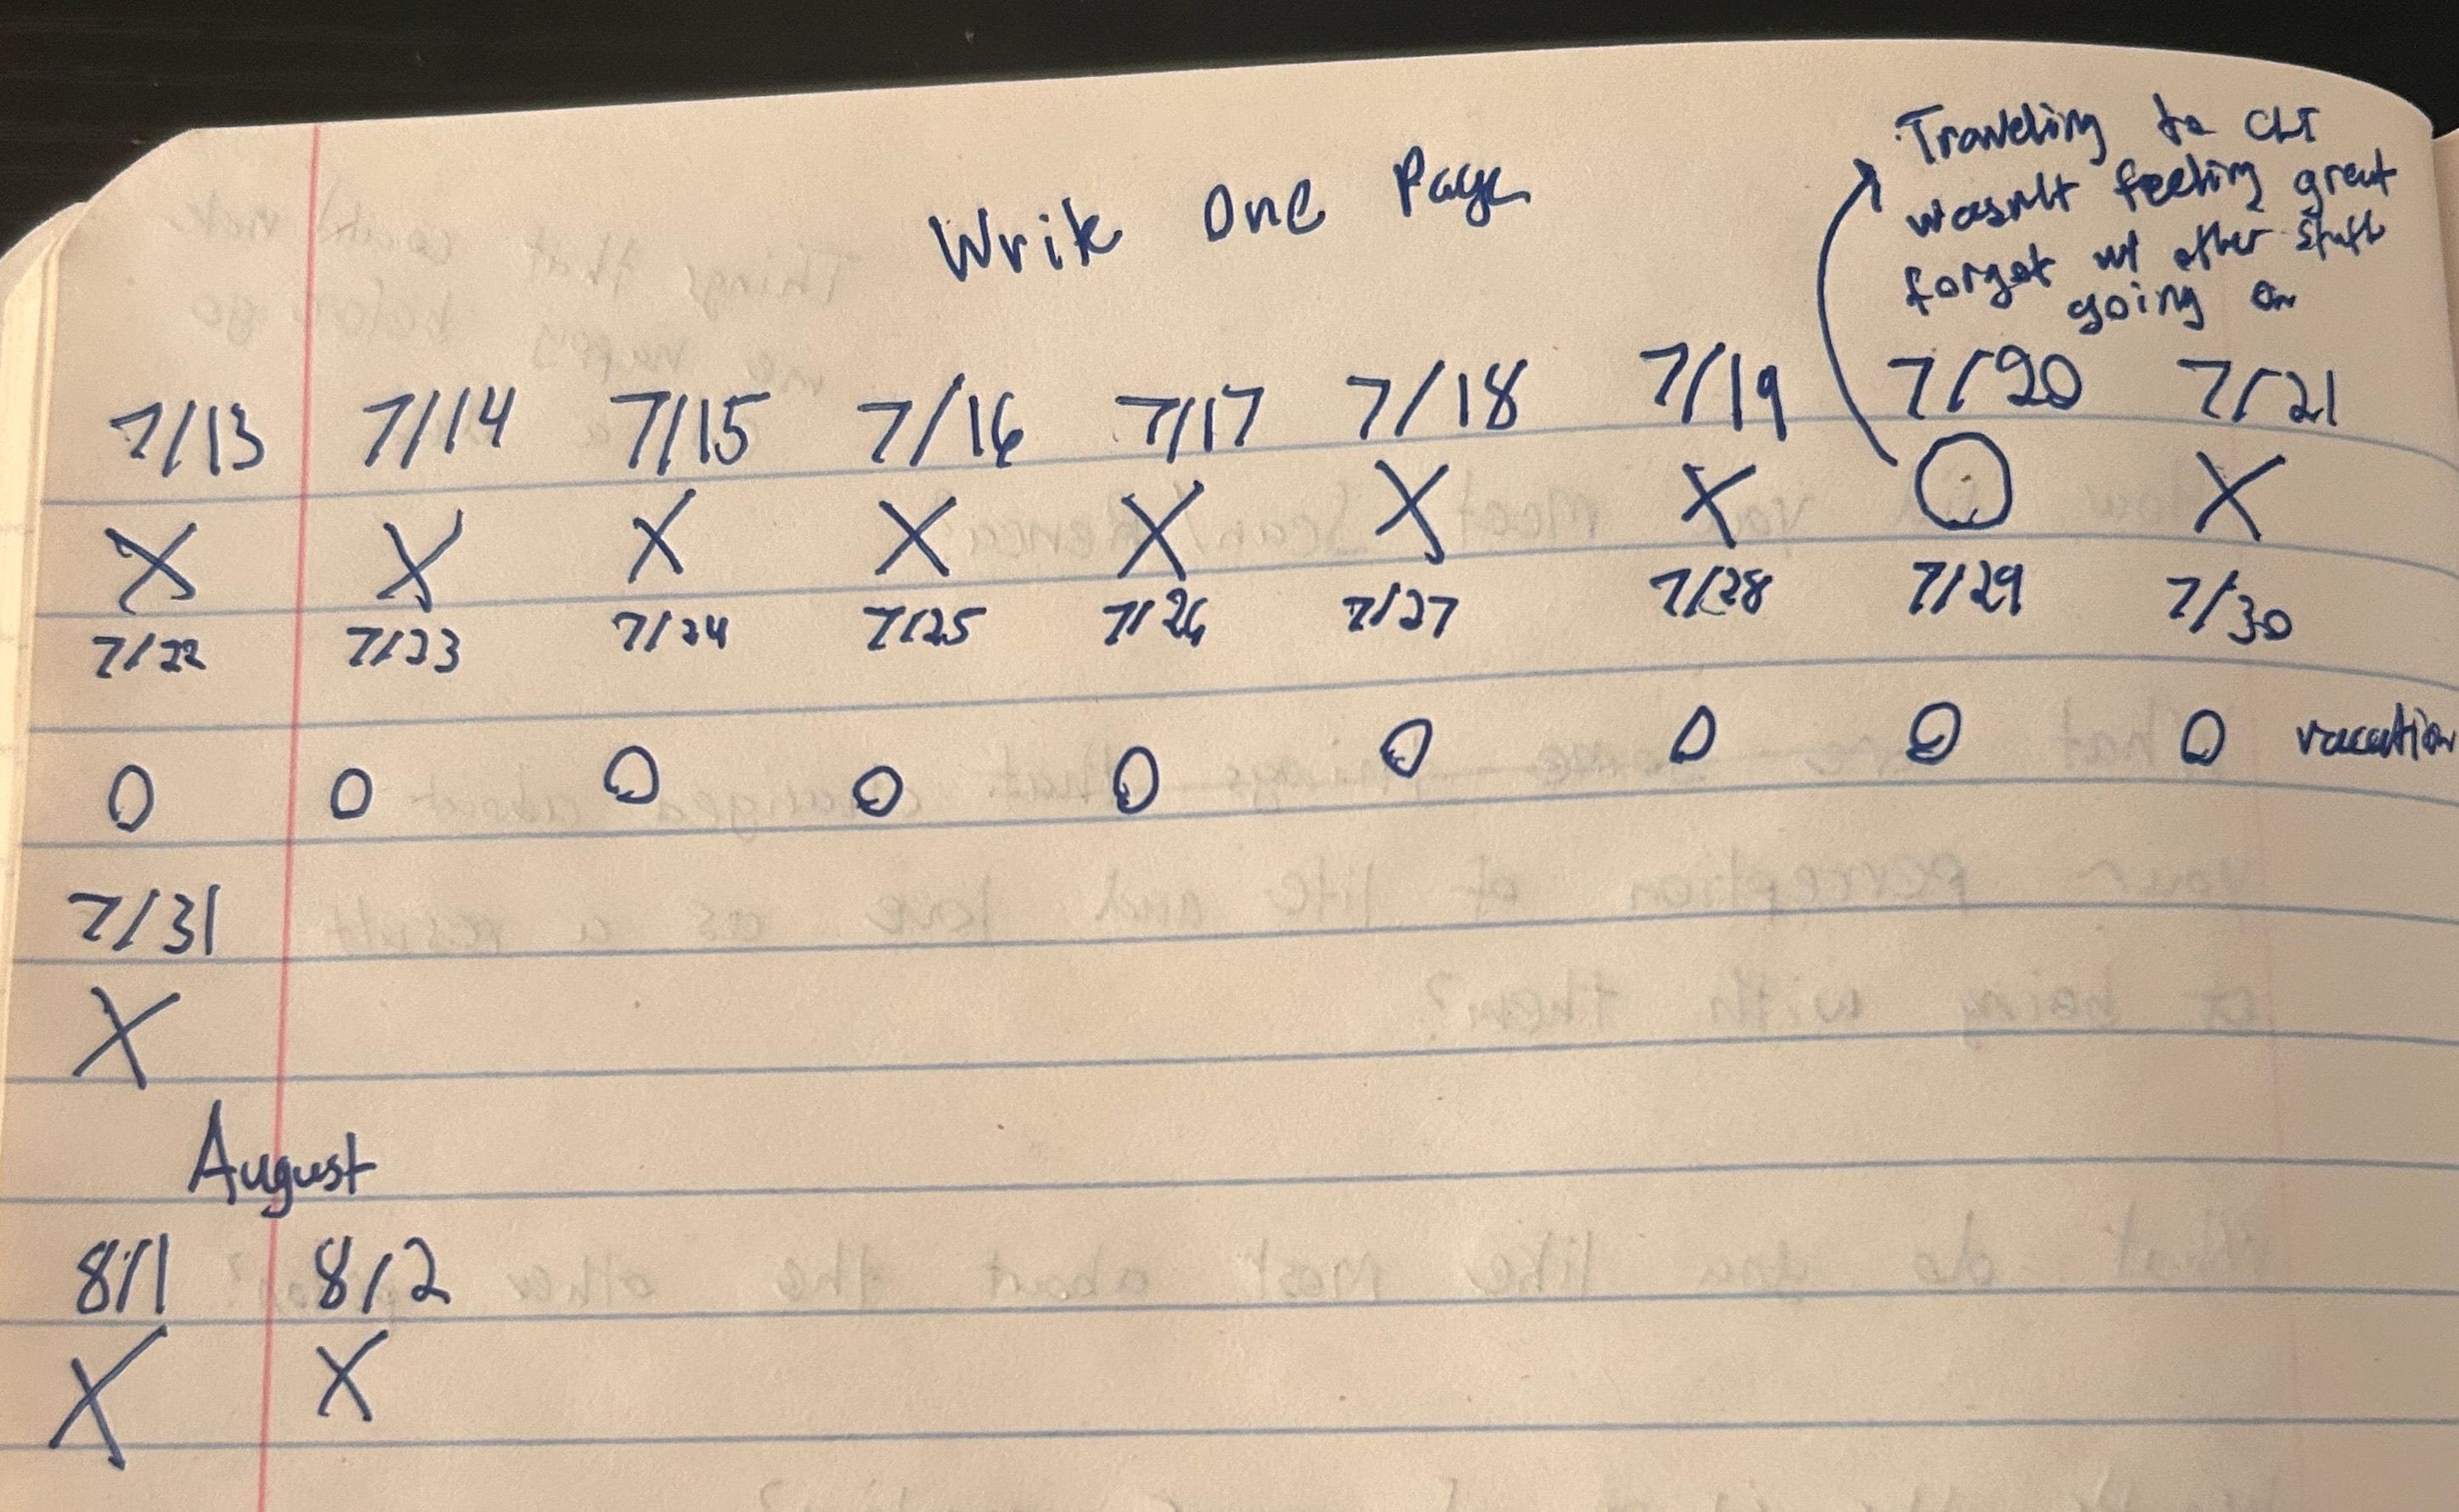 Write One Page
Traveling to CLT
wasn't feeling great
forgot w/ other stuff
going on
7/13 7/14 7/15 7/16 7/17 7/18 7/19 7/20 7/21
X X X X X X X O X
7/22 7/23 7/24 7/25 7/26 7/27 7/28 7/29 7/30
O O O O O O O O O vacation
7/31
X
August
8/1 8/2
X X